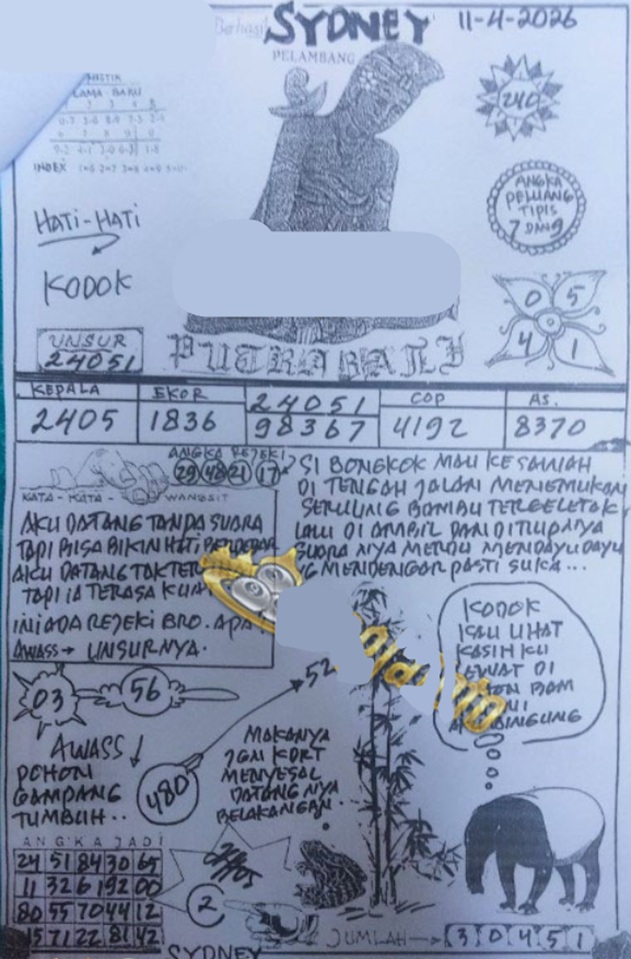 Berhasil
SYDNEY
11-4-2026
PELAMBANG
LAMA - BARU
INDEX
240
HATI-HATI
KODOK
ANGKA
PELUANG
TIPIS
7 DAN 9
UNSUR
24051
0 5
4 1
PUTRA BALI
KEPALA
EKOR
24051
COP
AS.
2405
1836
98367
4192
8370
ANGKA REJEKI
29 48 21 17
KATA - KATA - WANGSIT
AKU DATANG TANDA SUARA
TAPI BISA BIKIN HATI
AKU DATANG TAK
TAPI IA TERASA
INI ADA REJEKI BRO. APA
AWASS → UNSURNYA.
SI BONGKOK MAU KE SAWAH
DI TENGAH JALAN MENEMUKAN
SERULUNG BAMBU TERGELETAK
LALU DI AMBIL DAN DITIUPNYA
SUARA NYA MERDU MENDAYU DAYU
MENDENGAR PASTI SUKA...
KODOK
KAU LIHAT
KASIH KU
LEWAT DI
BAM
BINGUNG
03
56
52
480
AWASS
POHON
GAMPANG
TUMBUH..
MAKANYA
JGN KORT
MENYESAL
DATANG NYA
BELAKANGAN..
ANGKA JADI
24 51 84 30 65
11 32 61 92 00
80 55 70 44 12
15 71 22 81 42
2
SYDNEY
JUMLAH → 3 0 4 5 1